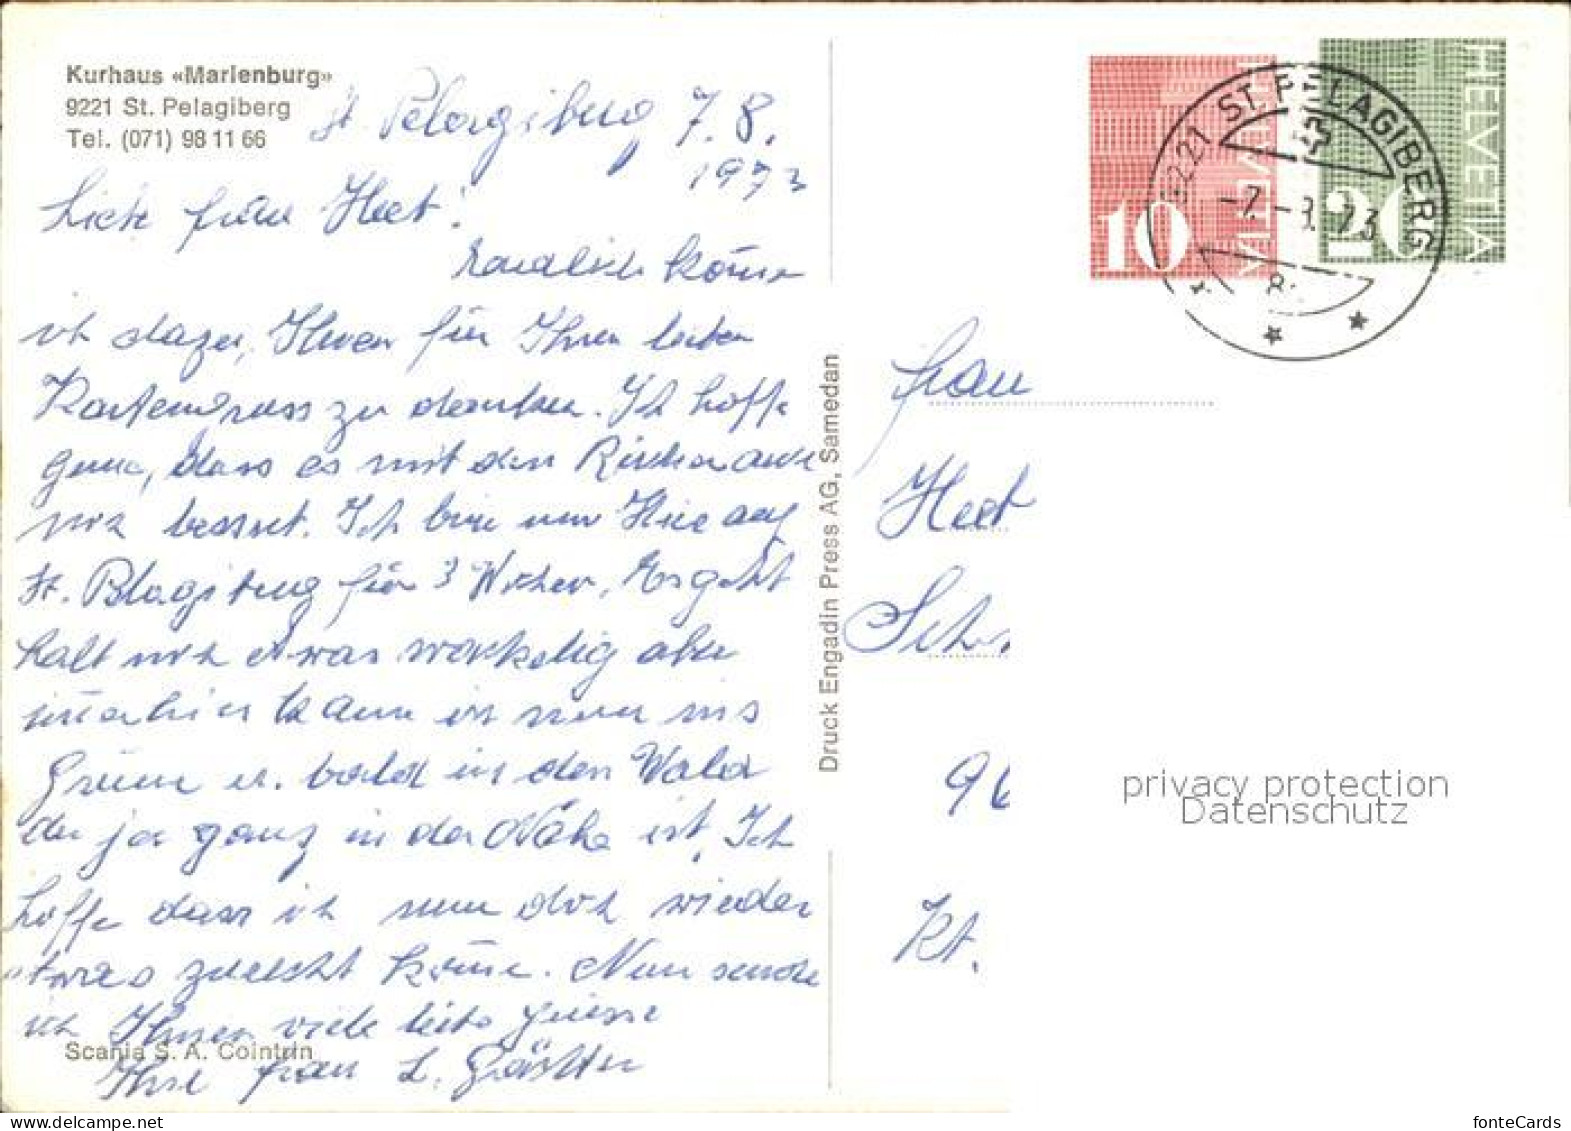 Kurhaus «Marienburg»
9221 St. Pelagiberg
Tel. (071) 98 11 66
St. Pelagiberg 7. 8.
1973
Liebe Frau Heet!
Endlich komme
ich dazu, Ihnen für Ihren lieben
Kartengruss zu danken. Ich hoffe
gerne, dass es mit den Rücken auch
besset. Ich bin nun Hier auf
St. Pelagiberg für 3 Wochen, Es geht
halt noch etwas wackelig aber
immerhin kann ich nun ins
Grüne u. bald in den Wald
der ja ganz in der Nähe ist. Ich
hoffe dass ich nun doch wieder
etwas zwecht komme. Nun sende
ich Ihnen viele liebe Grüsse
Ihre Frau L.
Scania S. A. Cointrin
Druck Engadin Press AG, Samedan
HELVETIA
10
HELVETIA
20
9221 ST. PELAGIBERG
-7.-8.73
Frau
Heet
Sch
96
Kt.
privacy protection
Datenschutz
fonteCards